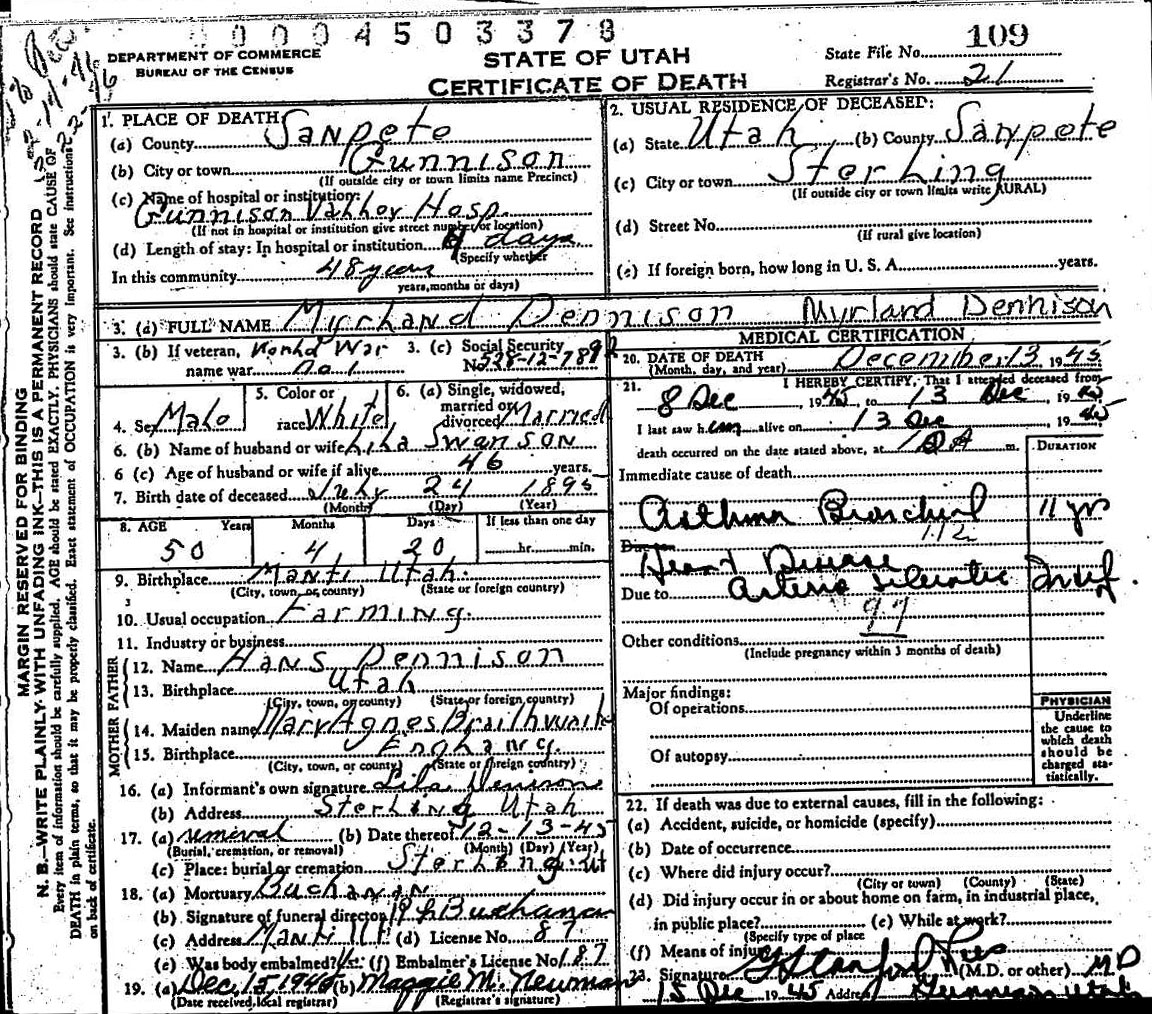 00004503378
DEPARTMENT OF COMMERCE
BUREAU OF THE CENSUS
STATE OF UTAH
CERTIFICATE OF DEATH
State File No. 109
Registrar's No. 21
MARGIN RESERVED FOR BINDING
N. B.—WRITE PLAINLY WITH UNFADING INK—THIS IS A PERMANENT RECORD
Every item of information should be carefully supplied. AGE should be stated EXACTLY. PHYSICIANS should state CAUSE OF
DEATH in plain terms, so that it may be properly classified. Exact statement of OCCUPATION is very important. See instructions
on back of certificate.
1. PLACE OF DEATH
(a) County Sanpete
(b) City or town Gunnison
(If outside city or town limits name Precinct)
(c) Name of hospital or institution:
Gunnison Valley Hosp.
(If not in hospital or institution give street number or location)
(d) Length of stay: In hospital or institution days
(Specify whether
In this community 48 years
years, months or days)
2. USUAL RESIDENCE OF DECEASED:
(a) State Utah (b) County Sanpete
(c) City or town Sterling
(If outside city or town limits write RURAL)
(d) Street No.
(If rural give location)
(e) If foreign born, how long in U. S. A. years.
3. (a) FULL NAME Myrland Dennison Myrland Dennison
3. (b) If veteran, name war World War no 1
3. (c) Social Security No. 528-12-7892
4. Sex Male
5. Color or race White
6. (a) Single, widowed, married or divorced Married
6. (b) Name of husband or wife Lila Swanson
6 (c) Age of husband or wife if alive 46 years.
7. Birth date of deceased July 24 1895
(Month) (Day) (Year)
8. AGE Years Months Days If less than one day
50 4 20 hr. min.
9. Birthplace Manti Utah.
(City, town, or county) (State or foreign country)
10. Usual occupation Farming.
11. Industry or business
FATHER
12. Name Hans Dennison
13. Birthplace Utah
(City, town, or county) (State or foreign country)
MOTHER
14. Maiden name Mary Agnes Braithwaite
15. Birthplace England.
(City, town, or county) (State or foreign country)
16. (a) Informant's own signature Lila Denison
(b) Address Sterling Utah
17. (a) removal (b) Date thereof 12-13-45
(Burial, cremation, or removal) (Month) (Day) (Year)
(c) Place: burial or cremation Sterling Ut
18. (a) Mortuary Buchanan
(b) Signature of funeral director Buchanan
(c) Address Manti Ut. (d) License No. 87
(e) Was body embalmed? yes (f) Embalmer's License No. 187
19. (a) Dec. 15, 1945 (b) Maggie M. Neuman
(Date received, local registrar) (Registrar's signature)
MEDICAL CERTIFICATION
20. DATE OF DEATH December 13, 1945
(Month, day, and year)
21. I HEREBY CERTIFY, That I attended deceased from
8 Dec, 1945, to 13 Dec, 1945
I last saw him alive on 13 Dec 1945
death occurred on the date stated above, at m.
DURATION
Immediate cause of death
Asthma Bronchial 11 yrs
112
Heart Disease
Due to Arterio sclerotic
97
Other conditions
(Include pregnancy within 3 months of death)
Major findings:
Of operations
Of autopsy
PHYSICIAN
Underline
the cause to
which death
should be
charged sta-
tistically.
22. If death was due to external causes, fill in the following:
(a) Accident, suicide, or homicide (specify)
(b) Date of occurrence
(c) Where did injury occur?
(City or town) (County) (State)
(d) Did injury occur in or about home on farm, in industrial place,
in public place? (e) While at work?
(Specify type of place
(f) Means of injury
23. Signature G Stanford Rees (M.D. or other) MD
15 Dec 1945 Address Gunnison Utah